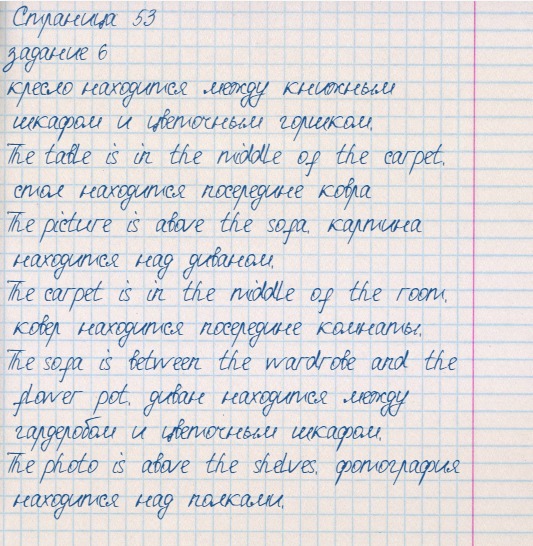 Страница 53
задание 6
кресло находится между книжным
шкафом и цветочным горшком.
The table is in the middle of the carpet.
стол находится посередине ковра
The picture is above the sofa. картина
находится над диваном.
The carpet is in the middle of the room.
ковер находится посередине комнаты.
The sofa is between the wardrobe and the
flower pot. диван находится между
гардеробом и цветочным шкафом.
The photo is above the shelves. фотография
находится над полками.